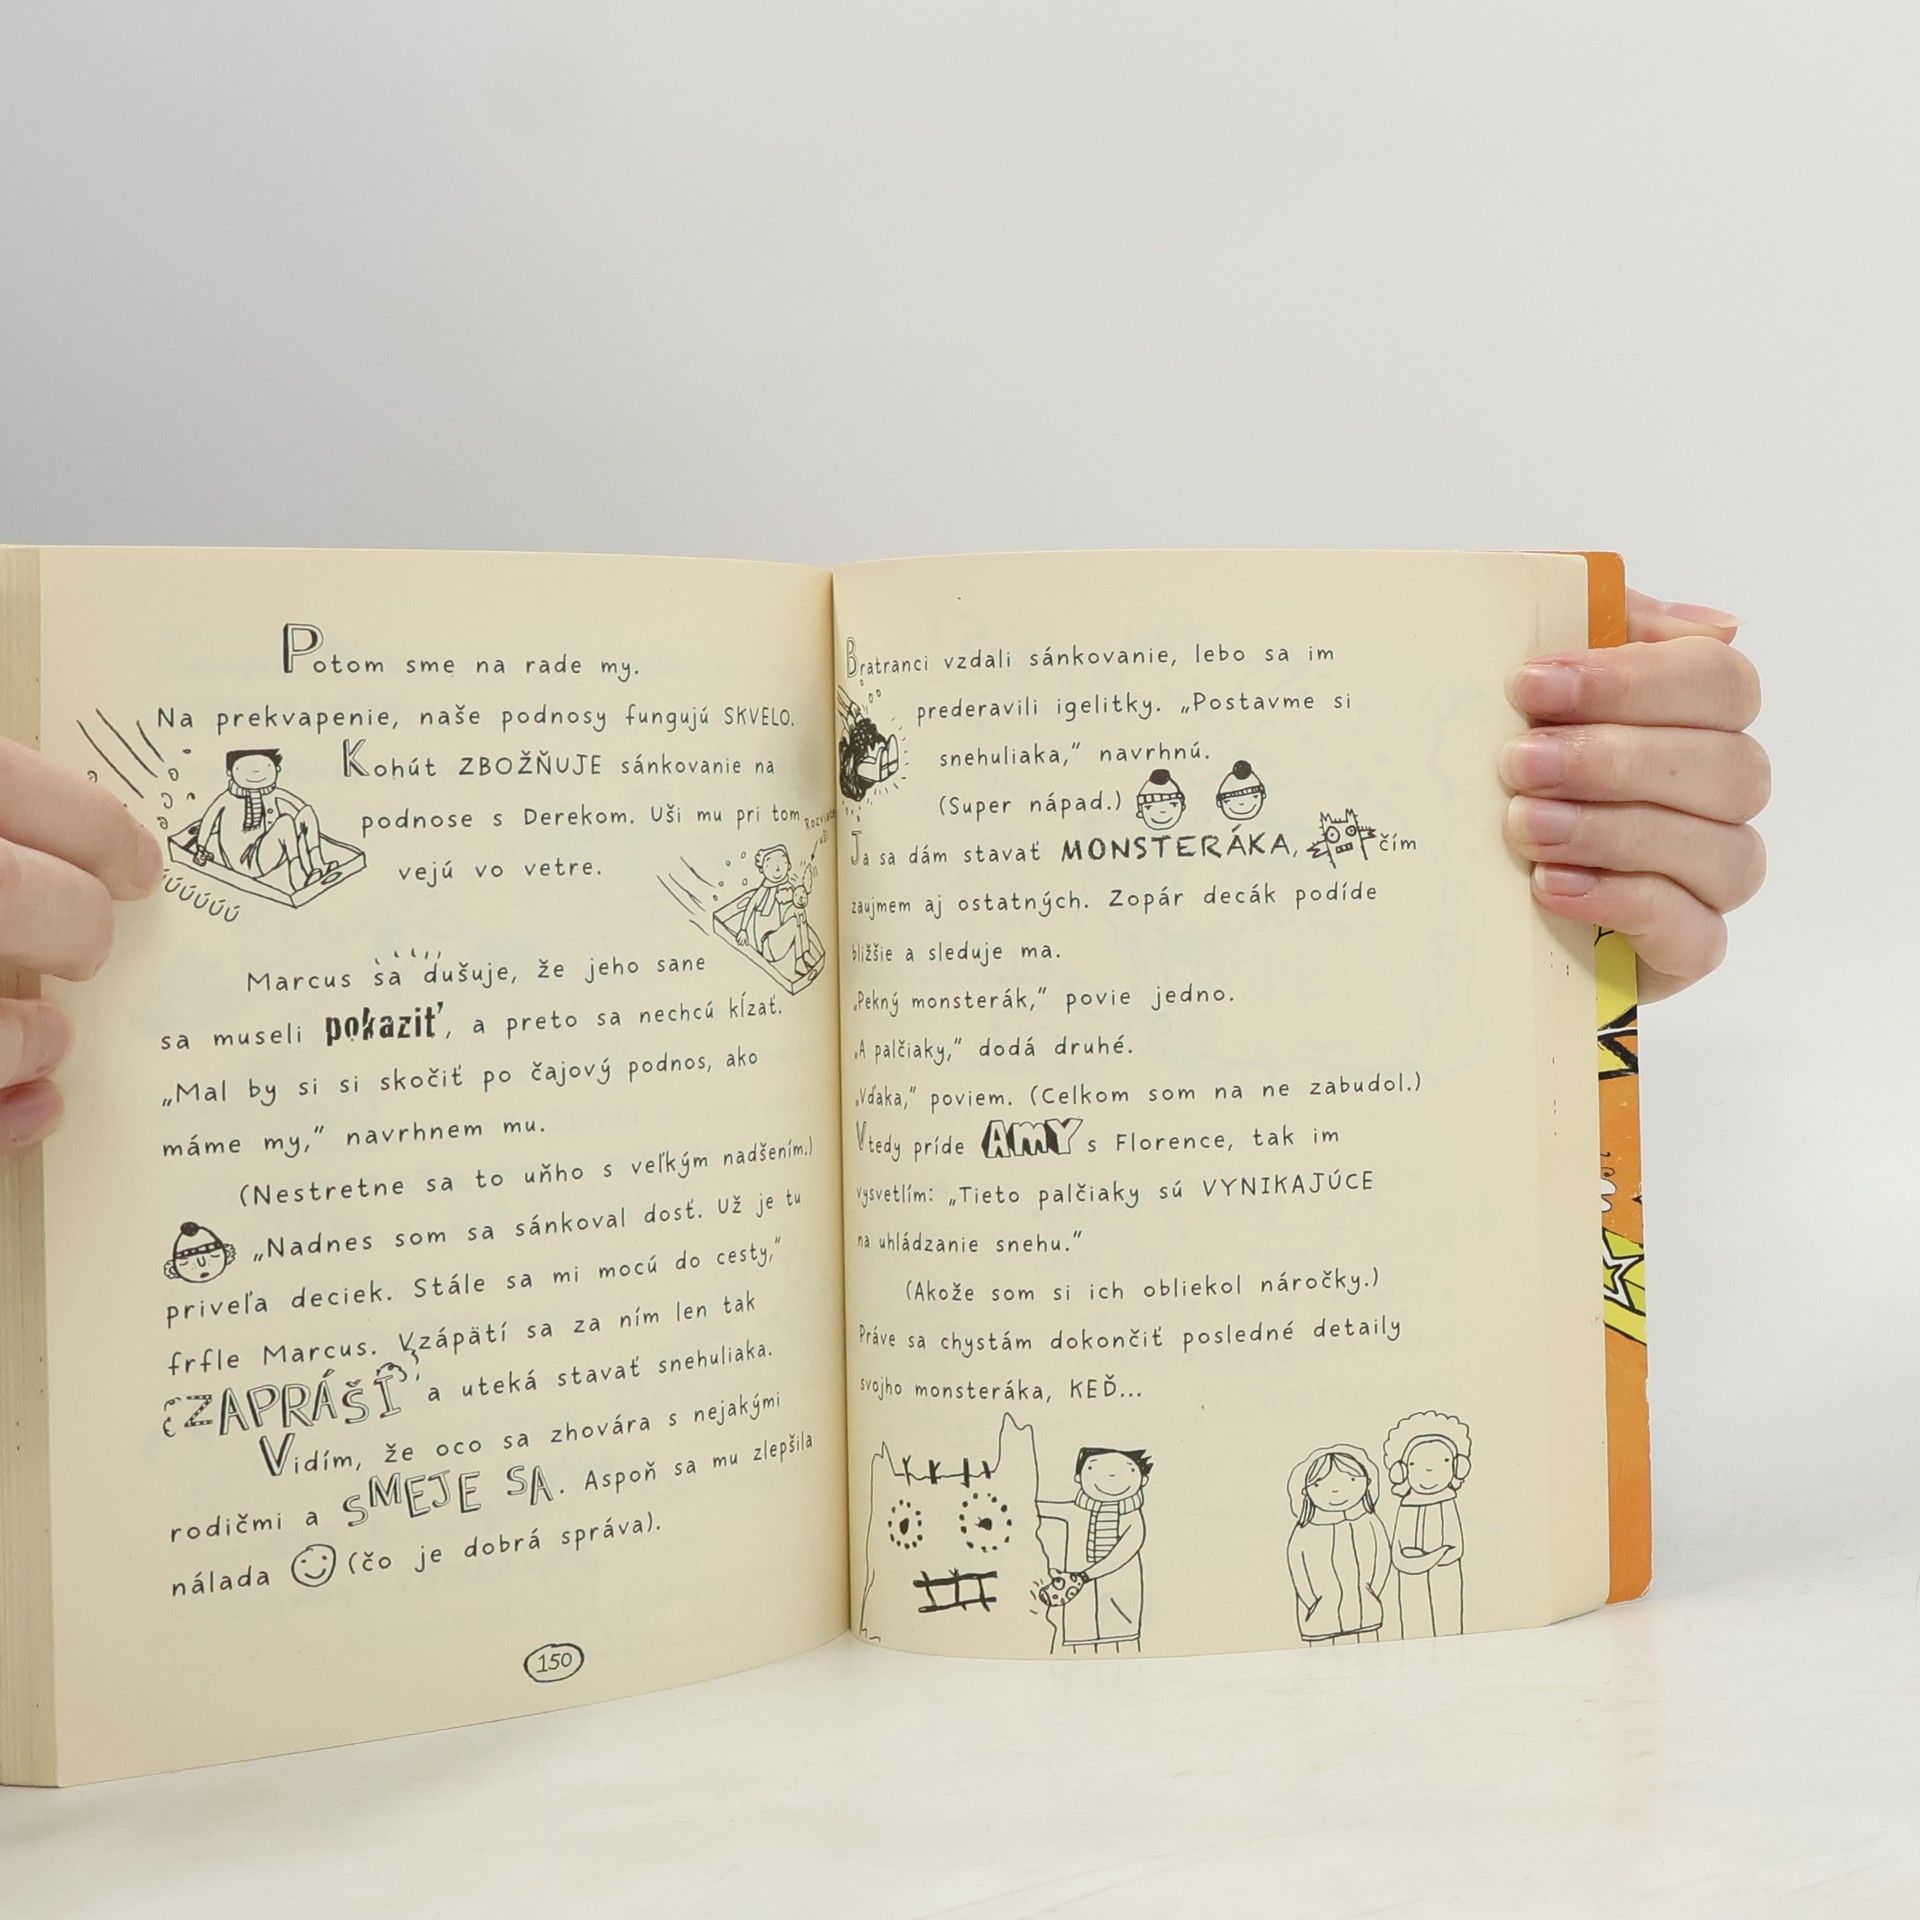 Potom sme na rade my.
Na prekvapenie, naše podnosy fungujú SKVELO.
Kohút ZBOŽŇUJE sánkovanie na
podnose s Derekom. Uši mu pri tom
vejú vo vetre.
Marcus sa dušuje, že jeho sane
sa museli pokaziť, a preto sa nechcú kĺzať.
„Mal by si si skočiť po čajový podnos, ako
máme my,“ navrhnem mu.
(Nestretne sa to uňho s veľkým nadšením.)
„Nadnes som sa sánkoval dosť. Už je tu
priveľa deciek. Stále sa mi mocú do cesty,“
frfle Marcus. Vzápätí sa za ním len tak
ZAPRÁŠI a uteká stavať snehuliaka.
Vidím, že oco sa zhovára s nejakými
rodičmi a SMEJE SA. Aspoň sa mu zlepšila
nálada (čo je dobrá správa).
150
Bratranci vzdali sánkovanie, lebo sa im
prederavili igelitky. „Postavme si
snehuliaka,“ navrhnú.
(Super nápad.)
Ja sa dám stavať MONSTERÁKA, čím
zaujmem aj ostatných. Zopár decák podíde
bližšie a sleduje ma.
„Pekný monsterák,“ povie jedno.
„A palčiaky,“ dodá druhé.
„Vďaka,“ poviem. (Celkom som na ne zabudol.)
Vtedy príde AMY s Florence, tak im
vysvetlím: „Tieto palčiaky sú VYNIKAJÚCE
na uhládzanie snehu.“
(Akože som si ich obliekol náročky.)
Práve sa chystám dokončiť posledné detaily
svojho monsteráka, KEĎ...